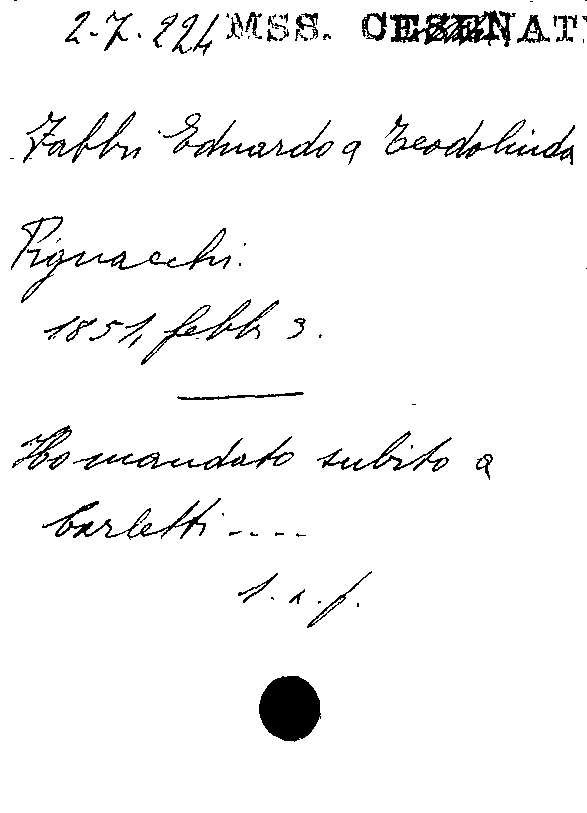 2.7.224 MSS. CESENATI
Fabbri Eduardo a Teodolinda
Pignacchi.
1851, febb 3.
Ho mandato subito a
Carletti ....
1. a. f.